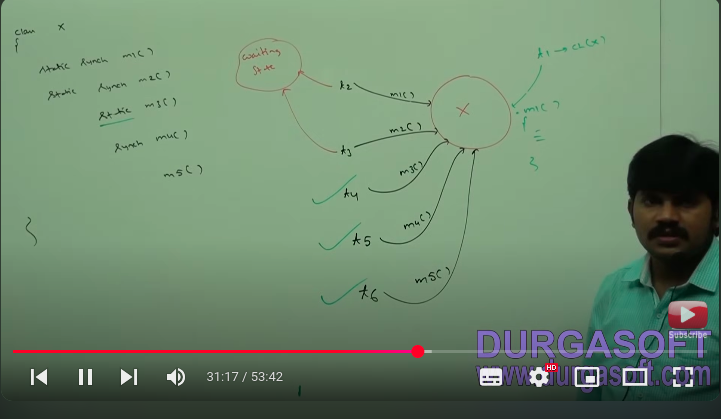 class X
{
static synch m1( )
static synch m2( )
static m3( )
synch m4( )
m5( )
}
waiting
state
t2
m1( )
t3
m2( )
t4
m3( )
t5
m4( )
t6
m5( )
X
t1 → cl(X)
m1( )
{
}
Subscribe
DURGASOFT
www.durgasoft.com
31:17 / 53:42
HD